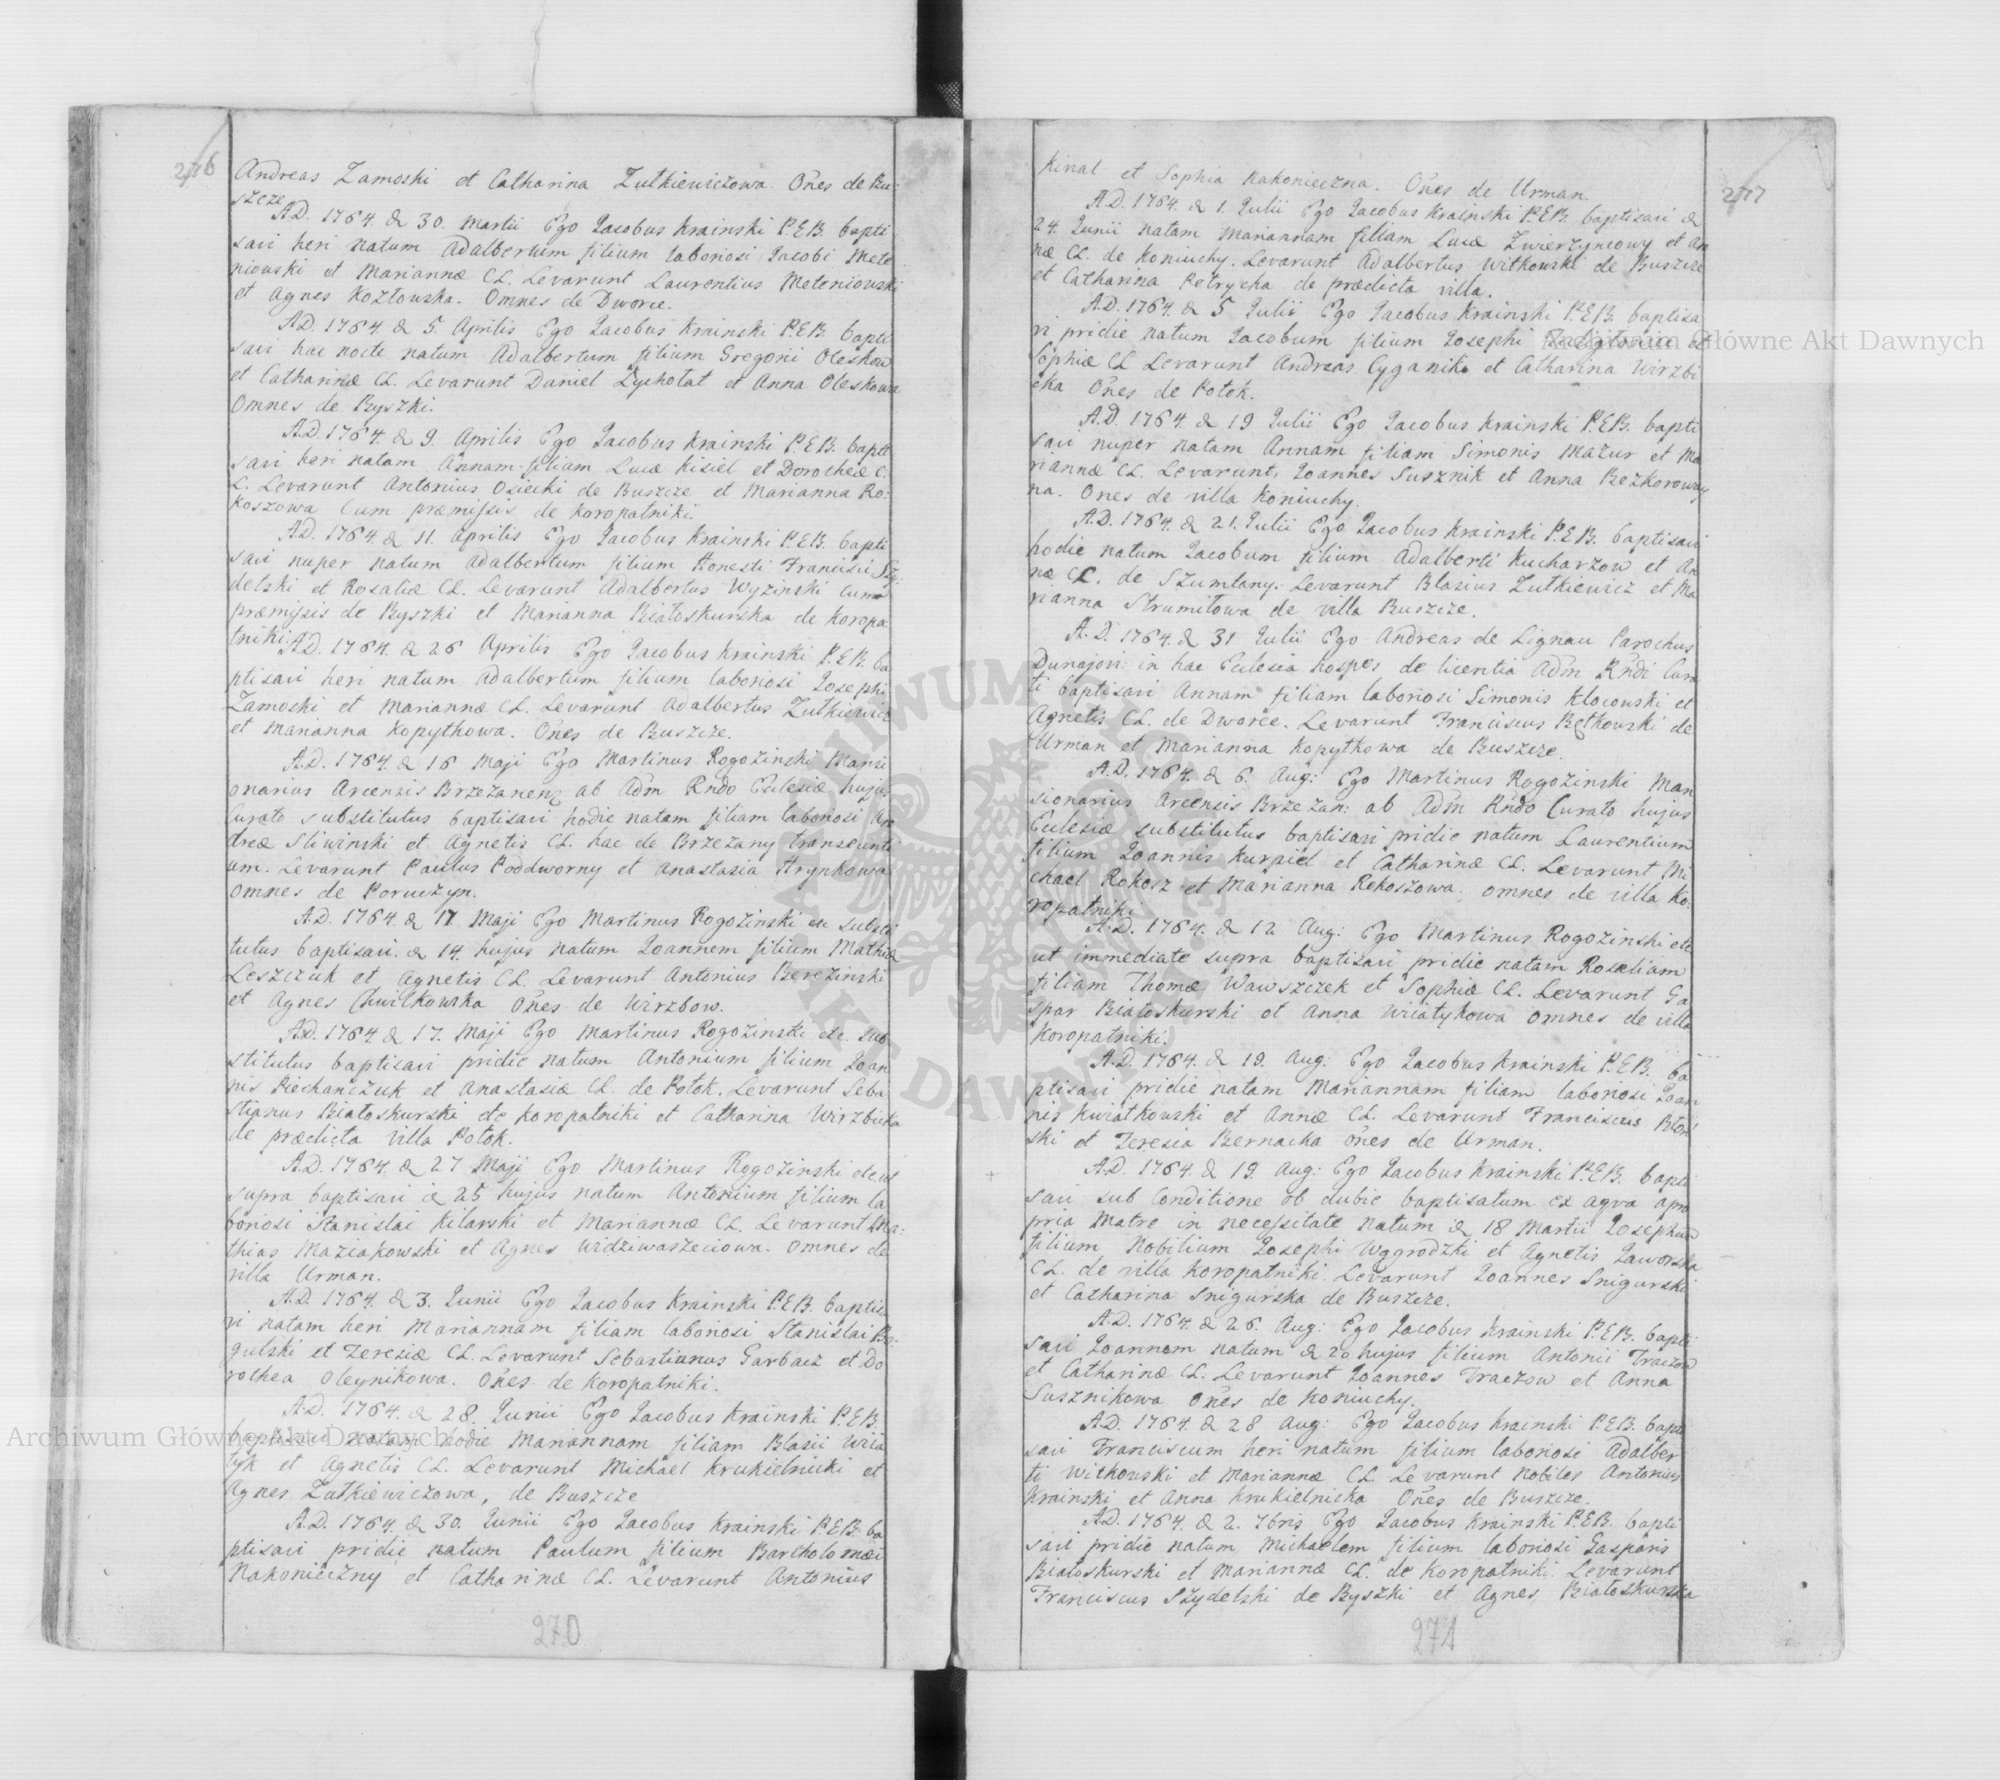 276
Andreas Zamoski et Catharina Zutkiewiczowa. Oñes de Bu-
szcze
A.D. 1764. d 30. Martii Ego Jacobus Krainski P.E.B. bapti
savi heri natum Adalbertum filium laboriosi Jacobi Mete
niowski et Mariannæ CL. Levarunt Laurentius Meteniowski
et Agnes Kozłowska. Omnes de Dworce.
A.D. 1764. d 5. Aprilis Ego Jacobus Krainski P.E.B. bapti
savi hac nocte natum Adalbertum filium Gregorii Oleskow
et Catharinæ CL. Levarunt Daniel Lychołat et Anna Oleskowa
Omnes de Byszki.
A.D. 1764. d 9. Aprilis Ego Jacobus Krainski P.E.B. bapti
savi heri natam Annam filiam Lucæ Kisiel et Dorotheæ C.
L. Levarunt Antonius Osiecki de Buszcze et Marianna Ro:
koszowa Cum præmissis de Koropatniki.
A.D. 1764. d 11. Aprilis Ego Jacobus Krainski P.E.B. bapti
savi nuper natum Adalbertum filium Honesti Francisci Szy:
delski et Rosaliæ CL. Levarunt Adalbertus Wyzinski cum
præmissis de Byszki et Marianna Białoskurska de Koropa
tniki.
A.D. 1764. d 26 Aprilis Ego Jacobus Krainski P.E.B. ba
ptisavi heri natum Adalbertum filium laboriosi Josephi
Zamoski et Mariannæ CL. Levarunt Adalbertus Zutkiewicz
et Marianna Kopytkowa. Oñes de Buszcze.
A.D. 1764. d 16 Maji Ego Martinus Rogozinski Mansi
onarius Arcensis Brzezanen ab Adm Rndo Eclesiæ hujus
Curato substitutus baptisavi hodie natam filiam laboriosi An
dreæ Sliwinski et Agnetis CL. hac de Brzezany transeunti
um. Levarunt Paulus Poddworny et Anastasia Hrynkowa
Omnes de Poruczyn.
A.D. 1764. d 17 Maji Ego Martinus Rogozinski etc substi
tutus baptisavi. d 14. hujus natum Joannem filium Mathiæ
Leszczuk et Agnetis CL. Levarunt Antonius Berezinski
et Agnes Chwiłkowska Oñes de Wirzbow.
A.D. 1764 d 17. Maji Ego Martinus Rogozinski etc. sub
stitutus baptisavi pridie natum Antonium filium Joan
nis Piechanczuk et Anastasiæ CL. de Potok. Levarunt Seba
stianus Białoskurski de Koropatniki et Catharina Wirzbicka
de prædicta villa Potok.
A.D. 1764. d 27 Maji Ego Martinus Rogozinski etc ut
supra baptisavi d 25 hujus natum Antonium filium la
boriosi Stanislai Kilarski et Mariannæ CL. Levarunt Ma:
thias Maziakowski et Agnes Widziwaszeciowa. Omnes de
villa Urman.
A.D. 1764. d 3. Junii Ego Jacobus Krainski P.E.B. baptisa
vi natam heri Mariannam filiam laboriosi Stanislai Bo:
gulski et Teresiæ CL. Levarunt Sebastianus Garbacz et Do
rothea Oleynikowa. Oñes de Koropatniki.
A.D. 1764. d 28. Junii Ego Jacobus Krainski P.E.B.
baptisavi natam hodie Mariannam filiam Blasii Wiia
tyk et Agnetis CL. Levarunt Michael Krukielnicki et
Agnes Zutkiewiczowa, de Buszcze
A.D. 1764. d 30. Junii Ego Jacobus Krainski P.E.B. ba
ptisavi pridie natum Paulum filium Bartholomæi
Nakonieczny et Catharinæ CL. Levarunt Antonius
270
277
Kinal et Sophia Nakonieczna. Oñes de Urman.
A.D. 1764. d 1. Julii Ego Jacobus Krainski P.E.B. baptisavi d
24. Junii natam Mariannam filiam Lucæ Zwierzyncowy et An
næ CL. de Koniuchy. Levarunt Adalbertus Witkowski de Buszcze
et Catharina Petrycha de prædicta villa.
A.D. 1764. d 5 Julii Ego Jacobus Krainski P.E.B. baptisa
vi pridie natum Jacobum filium Josephi et
Sophiæ CL Levarunt Andreas Cyganik et Catharina Wirzbi
cka Oñes de Potok.
A.D. 1764. d 19 Julii Ego Jacobus Krainski P.E.B. bapti
savi nuper natam Annam filiam Simonis Mazur et Ma
riannæ CL. Levarunt, Joannes Susznik et Anna Bezkoroway
na. Ones de villa Koniuchy.
A.D. 1764. d 21. Julii Ego Jacobus Krainski P.E.B. baptisavi
hodie natum Jacobum filium Adalberti Kucharzow et An
næ CL. de Szumlany. Levarunt Blasius Zutkiewicz et Ma
rianna Strumiłowa de villa Buszcze.
A.D. 1764. d 31 Julii Ego Andreas de Lignau Parochus
Dunajovi: in hac Eclesia hospes de licentia Adm Rñdi Cura
ti baptisavi Annam filiam laboriosi Simonis Klocowski et
Agnetis CL. de Dworce. Levarunt Franciscus Bętkowski de
Urman et Marianna Kopytkowa de Buszcze.
A.D. 1764. d 6. Aug: Ego Martinus Rogozinski Man
sionarius Arcensis Brzezan: ab Adm Rñdo Curato hujus
Eclesiæ substitutus baptisavi pridie natum Laurentium
filium Joannis Kurpiel et Catharinæ CL. Levarunt Mi
chael Rokosz et Marianna Rokoszowa. Omnes de villa Ko:
ropatniki.
A.D. 1764. d 12 Aug: Ego Martinus Rogozinski etc
ut immediate supra baptisavi pridie natam Rosaliam
filiam Thomæ Wawszczek et Sophiæ CL. Levarunt Ga
spar Białoskurski et Anna Wiiatykowa omnes de villa
Koropatniki.
A.D. 1764. d 19. Aug: Ego Jacobus Krainski P.E.B. ba
ptisavi pridie natam Mariannam filiam laboriosi Joan
nis Kwiatkowski et Annæ CL. Levarunt Franciscus Błon
ski et Teresia Bernacka Oñes de Urman.
A.D. 1764. d 19. Aug: Ego Jacobus Krainski P.E.B. bapti
savi sub Conditione ob dubie baptisatum ex aqva apro
pria Matre in necessitate natum d 18 Martii Josephum
filium Nobilium Josephi Wygrodzki et Agnetis Jaworska
CL. de villa Koropatniki. Levarunt Joannes Snigurski
et Catharina Snigurska de Buszcze.
A.D. 1764. d 26. Aug: Ego Jacobus Krainski P.E.B. bapti
savi Joannem natum d 20 hujus filium Antonii Traczow
et Catharinæ CL. Levarunt Joannes Traczow et Anna
Susznikowa Oñes de Koniuchy.
A.D. 1764. d 28 Aug: Ego Jacobus Krainski P.E.B. bapti
savi Franciscum heri natum filium laboriosi Adalber
ti Witkowski et Mariannæ CL. Levarunt Nobiles Antonius
Krainski et Anna Krukielnicka Oñes de Buszcze.
A.D. 1764. d 2. 7bris Ego Jacobus Krainski P.E.B. bapti
savi pridie natum Michaelem filium laboriosi Gasparis
Białoskurski et Mariannæ CL. de Koropatniki. Levarunt
Franciscus Szydelski de Byszki et Agnes Białoskurska
271
Archiwum Główne Akt Dawnych
Archiwum Główne Akt Dawnych
ARCHIWUM GŁÓWNE AKT DAWNYCH